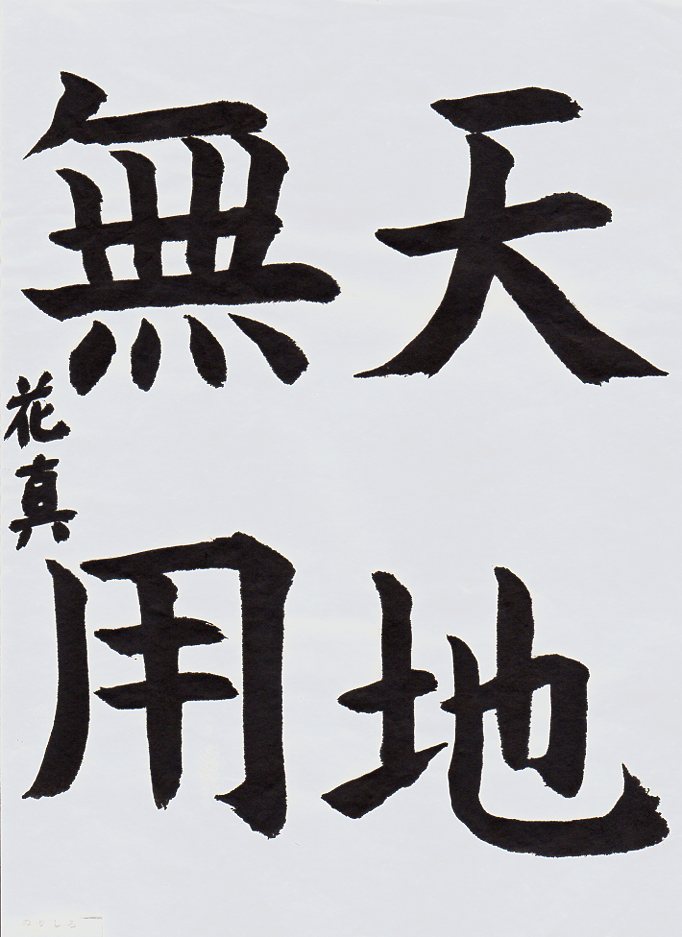 天地
無用
花真